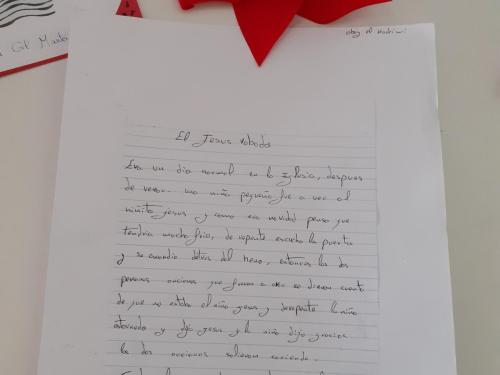 Gil
El Jesus robado
Era un dia normal en la Iglesia, despues
de rezar una niña pequeña fue a ver al
niñito jesus y como era navidad penso que
tendria mucho frio, de repente escucho la puerta
y se escondio detras del heno, entonces las dos
personas ancianas que fueron a no se dieron cuenta
de que no estaba el niño jesus y derepente la niña
estornudo y dijo jesus y la niña dijo gracias
las dos ancianas salieron corriendo.